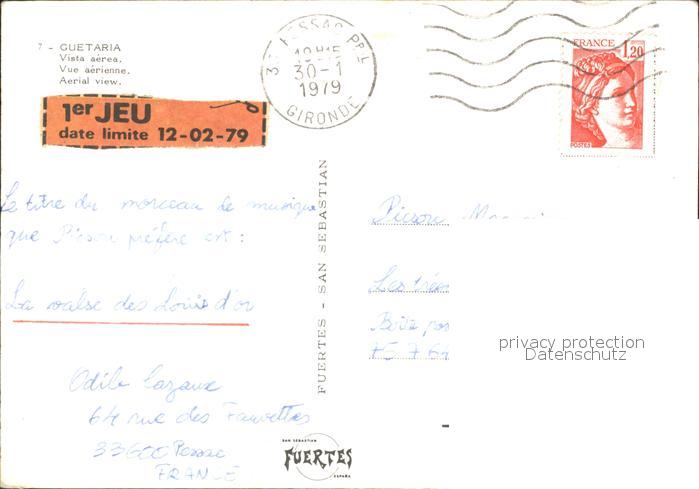 7 - GUETARIA
Vista aérea.
Vue aérienne.
Aerial view.
1er JEU
date limite 12-02-79
33 PESSAC PPL
19H15
30-1
1979
GIRONDE
FRANCE 1,20
POSTES
Le titre du morceau de musique
que Picsou préfère est :
La valse des Louis d'or
Odile Cazaux
64 rue des Fauvettes
33600 Pessac
FRANCE
FUERTES - SAN SEBASTIAN
Picsou
Les
Boite
75764
privacy protection
Datenschutz
SAN SEBASTIAN
FUERTES
ESPAÑA